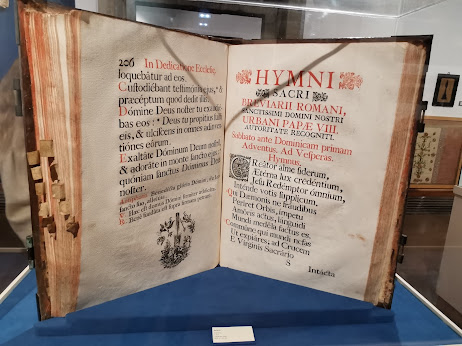 206 In Dedicatione Ecclesię.
loquebátur ad eos.
Custodiébant testimónia ejus, &
præcéptum quod dedit illis.
Dómine Deus noster tu exaudié-
bas eos : * Deus tu propítius fuísti
eis, & ulcíscens in omnes adinven-
tiónes eórum.
Exaltáte Dóminum Deum nostrum,
& adoráte in monte sancto ejus:
quóniam sanctus Dóminus Deus
noster.
HYMNI
SACRI
BREVIARII ROMANI,
SANCTISSIMI DOMINI NOSTRI
URBANI PAPÆ VIII.
AUTORITATE RECOGNITI.
Sabbato ante Dominicam primam
Adventus. Ad Vesperas.
Hymnus.
Creátor alme síderum,
Ætérna lux credéntium,
Jesu Redémptor ómnium,
Inténde votis súpplicum.
Qui Dæmonis ne fráudibus
Períret Orbis, ímpetu
Amóris actus, lánguidi
Mundi medéla factus es.
Commúne qui mundi nefas
Ut expiáres, ad Crucem
E Vírginis Sacrário
S
Intácta